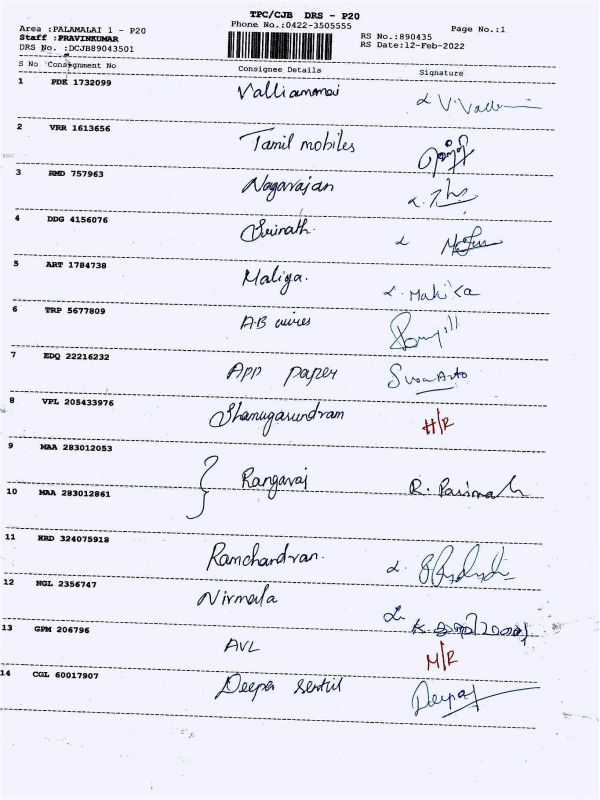 TPC/CJB DRS - P20
Area :PALAMALAI 1 - P20 Phone No.:0422-3505555 Page No.:1
Staff :PRAVINKUMAR RS No.:890435
DRS No. :DCJB89043501 RS Date:12-Feb-2022
S No Consignment No Consignee Details Signature
1 PDK 1732099 Valliammai
2 VRR 1613656 Tamil mobiles
3 RMD 757963 Nagarajan
4 DDG 4156076 Srinath.
5 ART 1784738 Maliga.
6 TRP 5677809 A.B wires
7 EDQ 22216232 App paper
8 VPL 205433976 Shanugasundram H/R
9 MAA 283012053
Rangaraj
10 MAA 283012861
11 HRD 324075918 Ramchandran.
12 NGL 2356747 Nirmala
13 GPM 206796 AVL M/R
14 CGL 60017907 Deepa Deepa